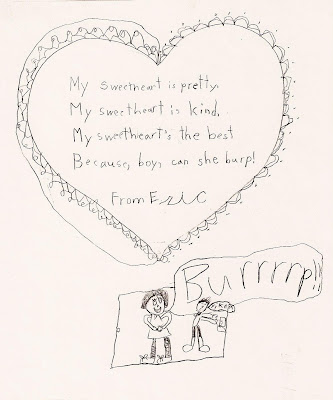 My sweetheart is pretty.
My sweetheart is kind.
My sweetheart's the best
Because, boy, can she burp!
From Eric
Burrrrp!!